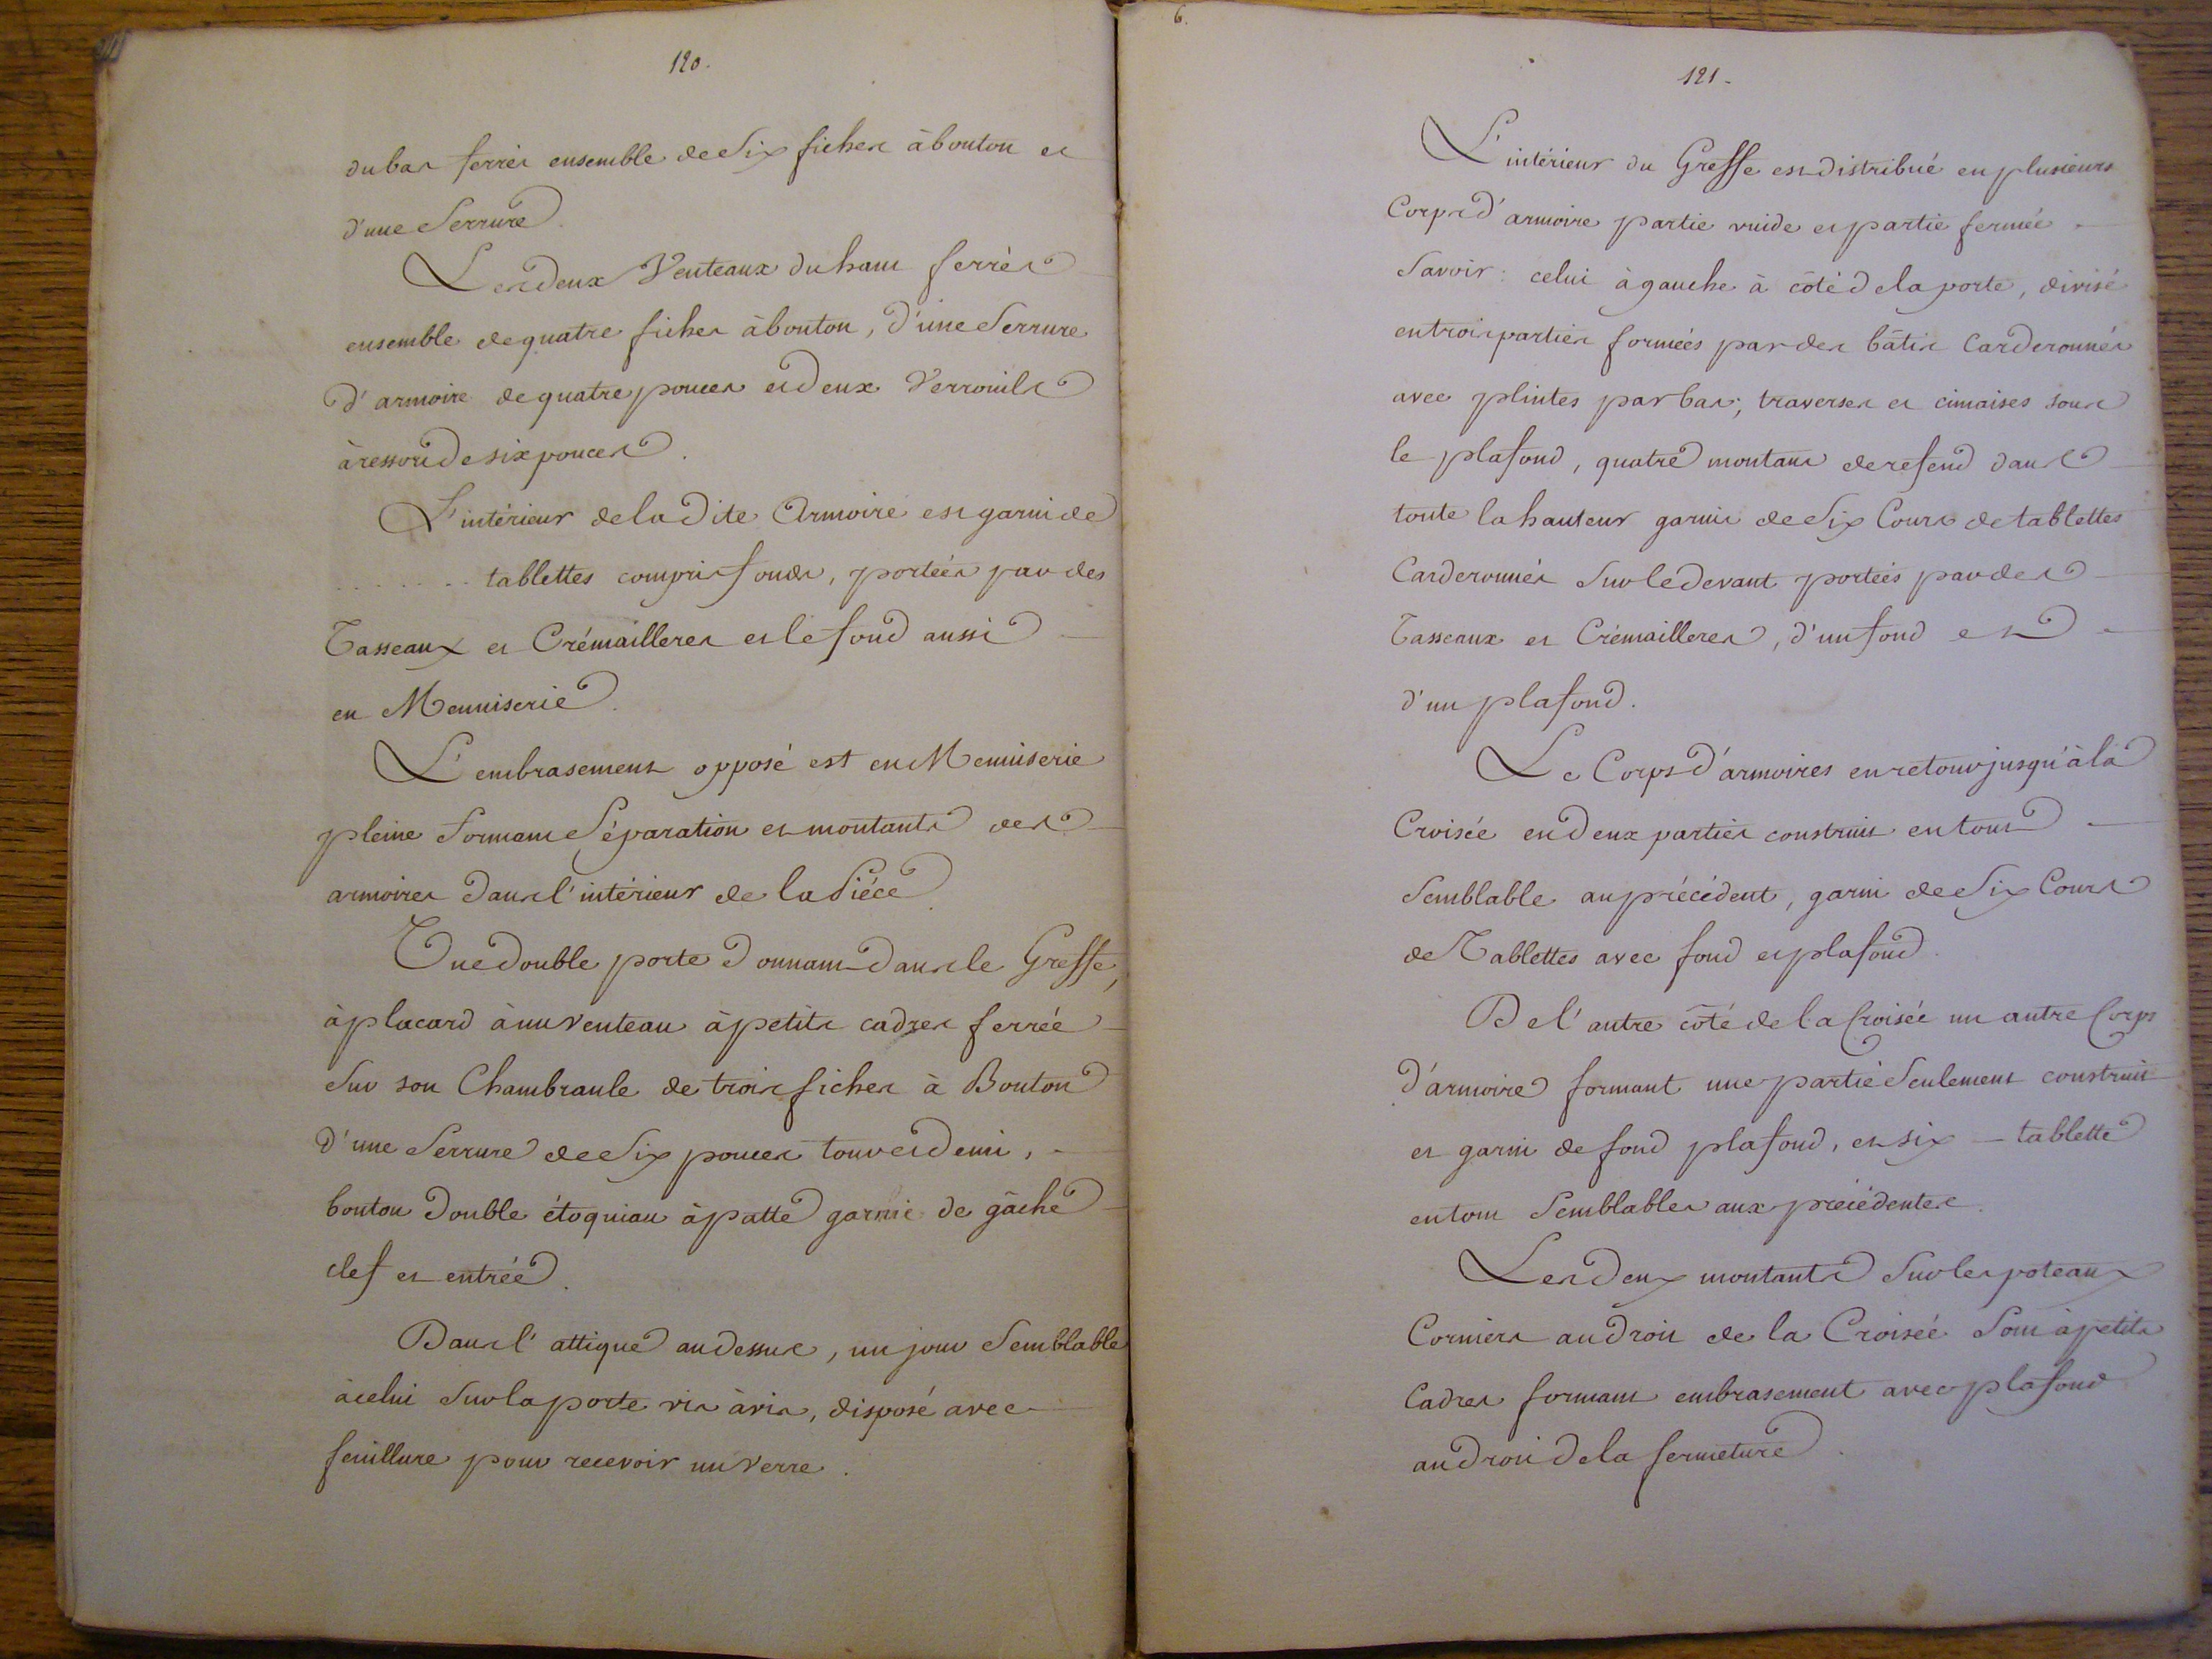 120.
du bas ferrés ensemble de Six fiches à bouton et
d'une Serrure.
Les deux Venteaux du haut ferrés
ensemble de quatre fiches à bouton, d'une Serrure
d'armoire de quatre pouces et deux Verrouils
à ressort de six pouces.
L'intérieur de la dite Armoire est garni de
. . . . . . . tablettes compris fonds, portées par des
Tasseaux et Crémailleres et le fond aussi
en Menuiserie.
L'embrasement opposé est en Menuiserie
pleine formant Séparation et montants des
armoires dans l'intérieur de la Piéce.
Une double porte donnant dans le Greffe,
à placard à un Venteau à petits cadres ferrée
Sur son Chambranle de trois fiches à Bouton
d'une Serrure de Six pouces tour et demi,
bouton double étoquiau à patte garnie de gâche
clef et entrée.
Dans l'attique au dessus, un jour Semblable
à celui Sur la porte vis à vis, disposé avec
feuillure pour recevoir un Verre.
6.
121.
L'intérieur du Greffe est distribué en plusieurs
Corps d'armoire partie vuide et partie fermée
Savoir: celui à gauche à côté de la porte, divisé
en trois parties formées par des bâtis Carderonnés
avec plintes par bas; traverses et cimaises sous
le plafond, quatre montans de refend dans
toute la hauteur garnis de Six Cours de tablettes
Carderonnés Sur le devant portées par des
Tasseaux et Crémailleres, d'un fond et
d'un plafond.
Le Corps d'armoires en retour jusqu'à la
Croisée en deux parties construit en tout
Semblable au précédent, garni de Six Cours
de Tablettes avec fond et plafond.
De l'autre côté de la Croisée un autre Corps
d'armoire formant une partie Seulement construit
et garni de fond plafond, et six tablette
en tout Semblables aux précédentes.
Les deux montants Sur les poteaux
Corniers au droit de la Croisée Sont à petits
Cadres formant embrasement avec plafond
au droit de la fermeture.